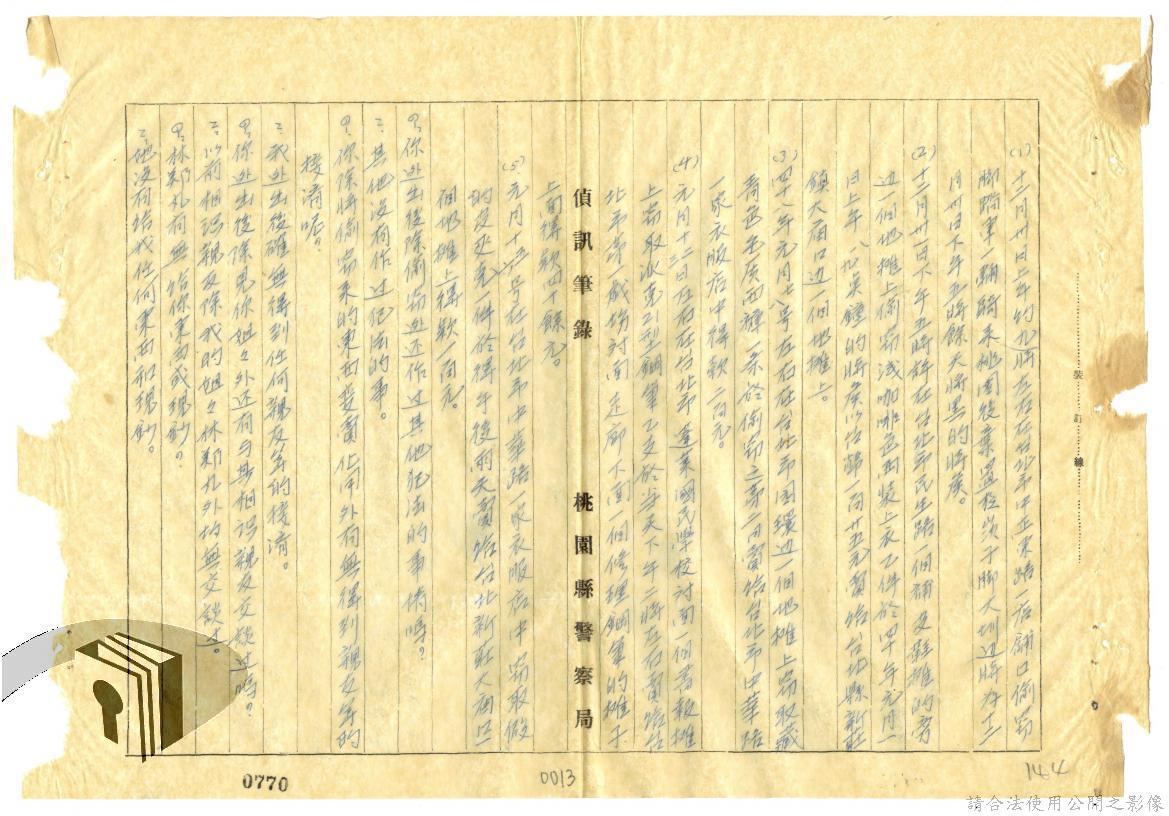 (1) 十二月卅日上午約九時左右在台北市中正東路一店舖口偷竊
腳踏車一輛騎來桃園後棄置於 腳大圳边時為十二
月卅日下午五時餘天將黑的時候。
(2) 十二月卅一日下午五時餘在台北市民生路一個補皮鞋攤的旁
边一個地攤上偷竊淺咖啡色西裝上衣乙件於四 年元月一
日上午八九点鐘的時候以台幣一百廿五元賣給台北縣新莊
鎮大廟口边一個地攤上。
(3) 四十八年元月七八号左右在台北市圓環边一個地攤上竊取藏
青色 西褲一条於偷竊之第二 賣給台北市中華路
一家衣服店中得款二百元。
(4) 元月十三日左右在台北市蓬萊國民學校对面一個書報攤
上竊取派克21型鋼筆乙支於当天下午二時左右賣給台
北市第一戲場对面走廊下面一個修理鋼筆的攤子
上面得款四十餘元。
偵訊筆錄 桃園縣警察局
(5) 元月十 号在台北市中華路一家衣服店中竊取 
的皮夾克一件於得手後兩天賣給台北新莊大廟口一
個地攤上得款一百元。
問:你逃出後除偷竊外还作过其他犯法的事情嗎?
答:其他沒有作过犯法的事。
問:你除將偷竊來的東西变賣化用外有無得到親友等的
接濟呢?
答:我逃出後確無得到任何親友等的接濟。
問:你逃出後除見你姐々外还有与其相識親友交談过嗎?
答:以前相識親友除我的姐々林鄭 外均無交談过。
問:林鄭 有無給你東西或現鈔?
答:他沒有給我任何東西和現鈔。
裝訂線
0770
0013
144
請合法使用公開之影像